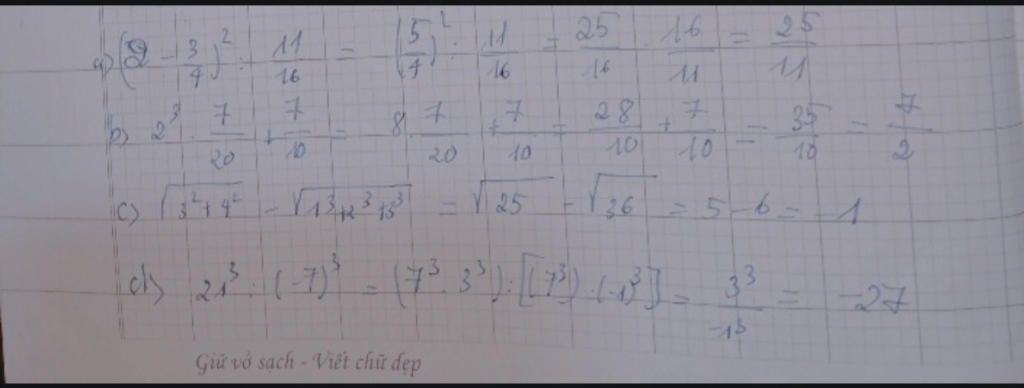 a) (2 - 3/4)² : 11/16 = (5/4)² : 11/16 = 25/16 . 16/11 = 25/11
b) 2³ . 7/20 + 7/10 = 8 . 7/20 + 7/10 = 28/10 + 7/10 = 35/10 = 7/2
c) √(3² + 4²) - √(1³ + 2³ + 3³) = √25 - √36 = 5 - 6 = -1
d) 21³ : (-7)³ = (7³ . 3³) : [(7³) . (-1)³] = 3³/-1³ = -27
Giữ vở sạch - Viết chữ đẹp